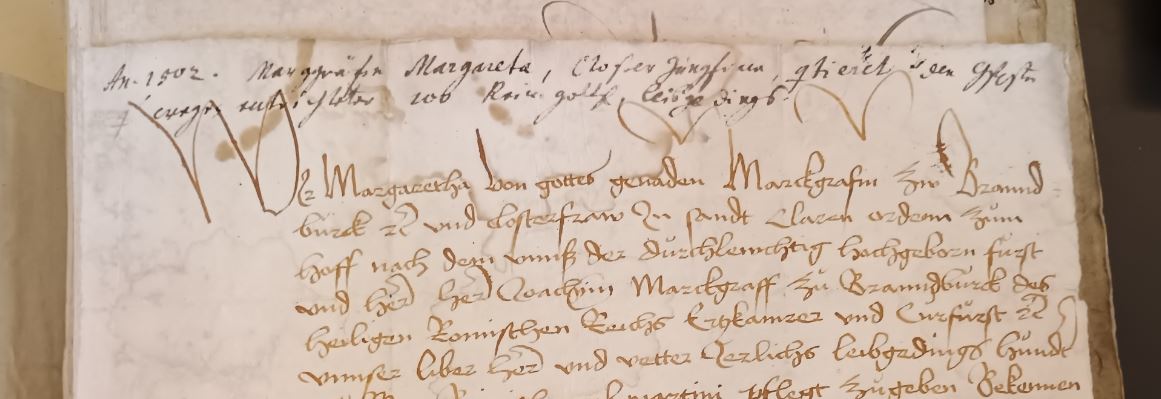 An. 1502. Marggräfin Margareta, Closter Jungfraw, qtieret in den
wegen entrichteter 100 Rein. goltf. leibgedings.
Wir Margaretha von gottes genaden Marckgrafin zw Brannd-
burck ꝛc und Closterfraw In sandt Claren ordenn zum
hoff nach dem unnß der durchlewchtig hochgeborn fürst
und her her Joachim Marckgraff zu Branndburck des
heiligen Romischen Reichs Ertzkamrer und Curfürst ꝛc
unnser liber her und vetter Jerlichs leibgedings hundt
martini pflegt zugeben Bekennen